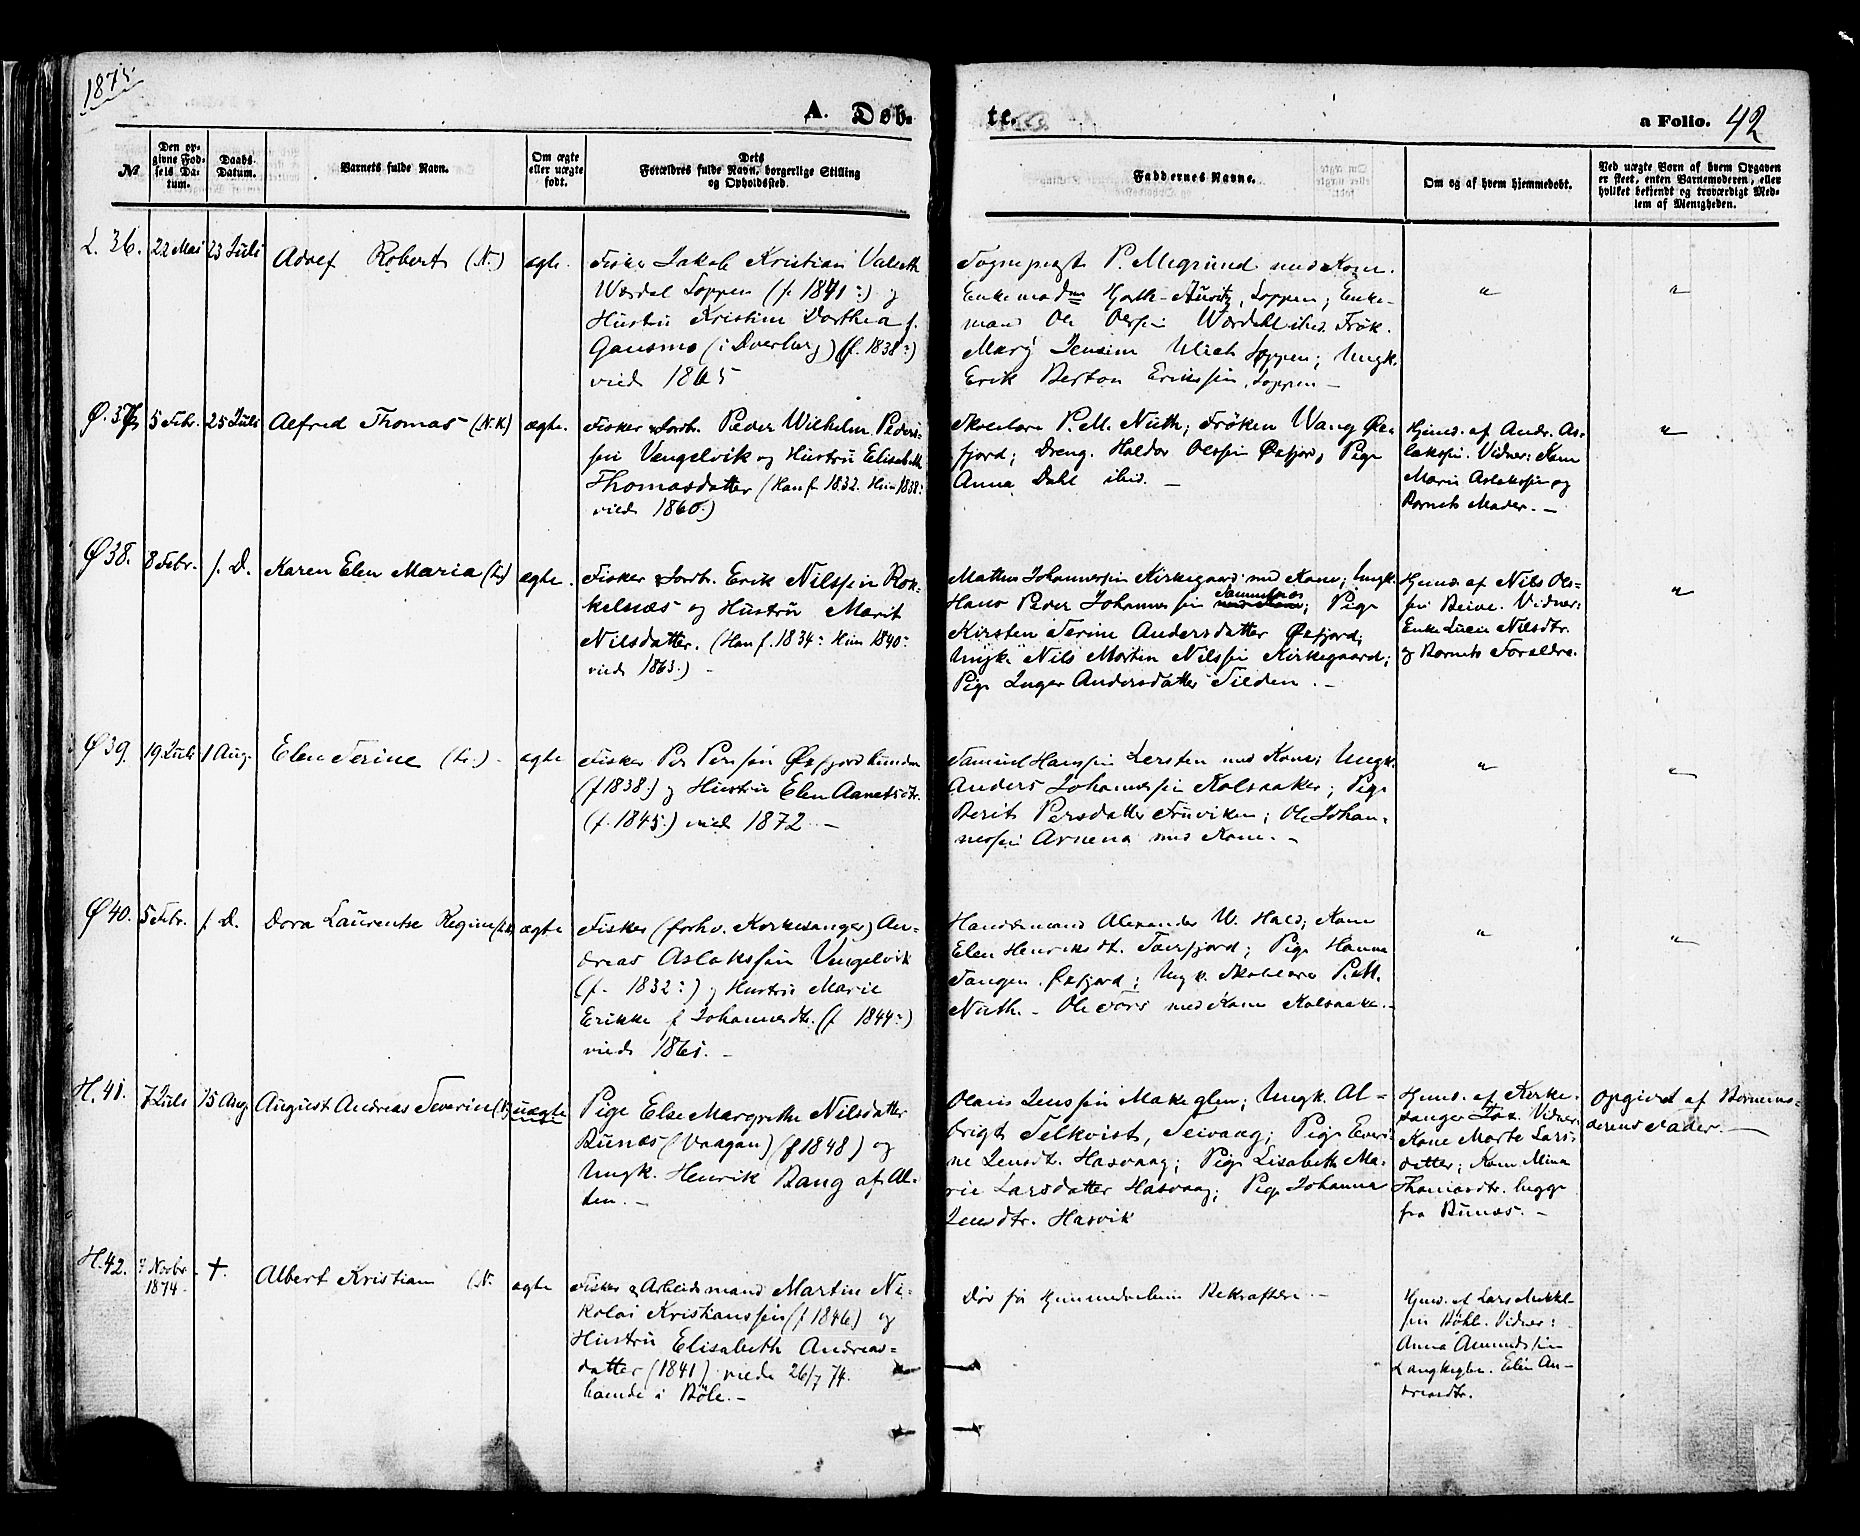 1875.
A. Døb-
te.
a Folio. 42
№
Den op-
givne Fød-
sels Da-
tum.
Daabs-
Datum.
Barnets fulde Navn.
Om ægte
eller uægte
født.
Dets
Forældres fulde Navn, borgerlige Stilling
og Opholdssted.
Faddernes Navne.
Om og af hvem hjemmedøbt.
Ved uægte Børn af hvem Opgaven
er skeet, enten Barnemoderen, eller
hvilket bekjendt og troværdigt Med-
lem af Menigheden.
L. 36.
22 Mai
23 Juli
Adolf Robert (N.)
ægte.
Fisker Jakob Kristian
Wærdal Loppen (f. 1841:) og
Hustru Kristine Dorthea f.
Gausmo (i Overberg) (f. 1838:)
viede 1865
Sogneprest P. Megrund med Kone.
Enkemadm Loppen; Enke-
mand Ole Olssen Wærdahl ibid. Frøk.
Mary Jensine Ulich Loppen; Ungk.
Erik Berton Erikssen, Loppen –
"
"
Ø. 37
5 Febr.
25 Juli
Alfred Thomas (N.K)
ægte.
Fisker & Jordb. Peder Wilhelm Peders-
sen Vengelvik og Hustru Elisabeth
Thomasdatter (Han f. 1832. Hun 1838:
viede 1860.)
Skolelærer P.M. Nuth; Frøken Wang Øx-
fjord; Dreng. Haldor Olssen Øxfjord; Pige
Anna Dahl ibid. –
Hjemd. af Andr. As-
lakssen. Vidner: Kone
Marie Aslakssen og
Barnets Moder. –
"
Ø 38.
8 Febr.
s. D.
Karen Elen Maria
ægte.
Fisker & Jordb. Erik Nilssen Rok-
kelnæs og Hustru Marit
Nilsdatter. (Han f. 1834: Hun 1840:
viede 1863.) –
Mathis Johannessen Kirkegaard med Kone; Ungk.
Hans Peder Johannessen ; Pige
Kirsten Serine Andersdatter Øxfjord;
Ungk. Nils Morten Nilssen Kirkegaard;
Pige Inger Andersdatter Tilden. –
Hjemd. af Nils Ols-
sen Beive. Vidner:
Enke Lucie Nilsdtr.
og Barnets Forældre.
"
Ø 39.
19 Juli
1 Aug.
Elen Serine
ægte
Fisker Per Perssen Øxfjordbunden
(f 1838.) og Hustru Elen Aanetsdtr.
(f. 1845.) viede 1872 –
Samuel Hanssen Lersten med Kone; Ungk.
Anders Johannessen Kolsaaker; Pige
Berit Persdatter Fuviken; Ole Johan-
nessen Arnena med Kone. –
"
"
Ø 40.
5 Febr.
s. D.
Dora Laurentse Regine
ægte
Fisker (forhv. Kirkesanger) An-
dreas Aslakssen Vengelvik
(f. 1832:) og Hustru Marie
Erikke f Johannesdtr. (f 1844:)
viede 1865. –
Handelsmand Alexander W. Hald; Kone
Elen Henriksdt. Tverfjord; Pige Hanna
Tangen Øxfjord; Ungk. Skolelærer P.M.
Nuth. – Ole med Kone Kolsaaker. –
"
"
H. 41.
7 Juli
15 Aug.
August Andreas Severin
uægte
Pige Else Margrethe Nilsdatter
Bunæs (Vaagan) (f 1848) og
Ungk. Henrik Bang af Al-
ten. –
Olaus Jenssen Makeglen; Ungk. Al-
brigt Selkvist, Seivaag; Pige Everi-
ne Jensdt. Hasvaag; Pige Lisabeth Ma-
rie Larsdatter Hasvaag; Pige Johanna
Jensdtr. Hasvik
Hjemd. af Kirke-
sanger Vidner.
Kone Marte Lars-
datter; Kone Mina
Thomasdtr. begge
fra Bunæs. –
Opgivet af Barnemo-
deren
H. 42.
7 Novbr.
1874.
+.
Albert Kristian (N.
ægte
Fisker & Arbeidsmand Martin Ni-
kolai Kristianssen (f 1846) og
Hustru Elisabeth Andreas-
datter (1841) viede 26/7 74.
hjemde i Bøle. –
Død før Hjemmedaabens Bekræftelse. –
Hjemd. af Lars Mikkel-
sen Bøhle. Vidner:
Anna Amundssen
Langkeglen. Elen An-
dreasdtr.